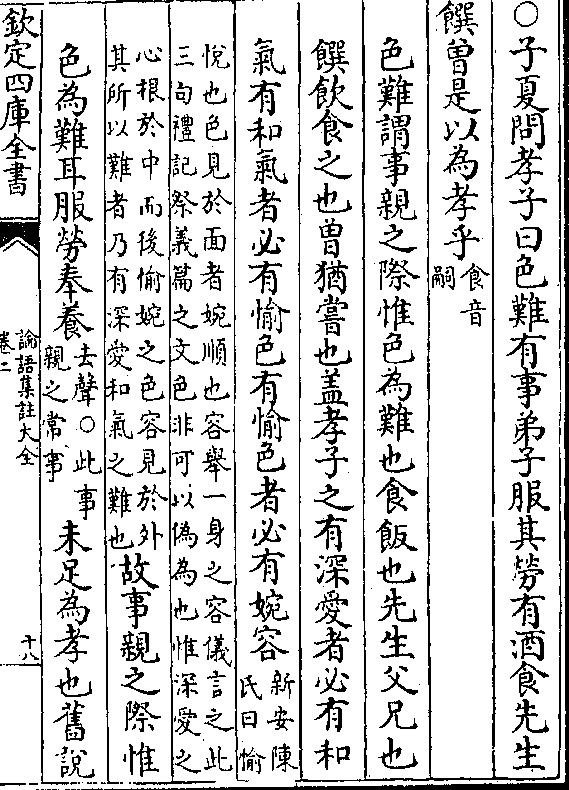 ○子夏問孝子曰色難有事弟子服其勞有酒食先生
饌曾是以為孝乎
食音
嗣
色難謂事親之際惟色為難也食飯也先生父兄也
饌飲食之也曾猶嘗也盖孝子之有深愛者必有和
氣有和氣者必有愉色有愉色者必有婉容
新安陳
氏曰愉
悅也色見於面者婉順也容舉一身之容儀言之此
三句禮記祭義篇之文色非可以偽為也惟深愛之
心根於中而後愉婉之色容見於外
其所以難者乃有深愛和氣之難也
故事親之際惟
色為難耳服勞奉養
去聲○此事
親之常事
未足為孝也舊說
欽定四庫全書
論語集註大全
卷二
十八